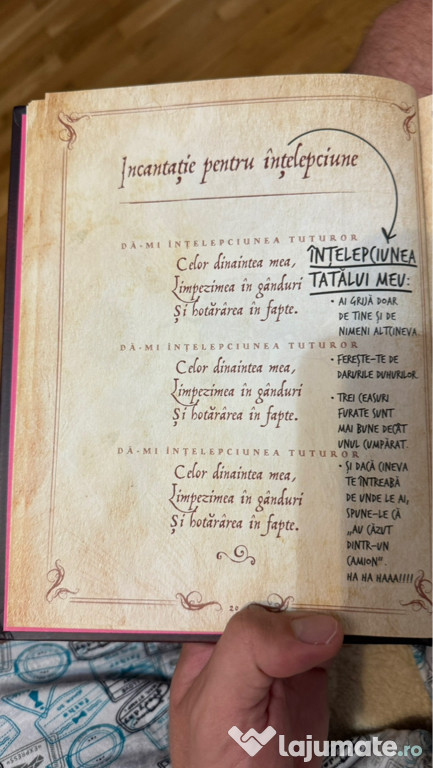 Incantație pentru înțelepciune
DĂ-MI ÎNȚELEPCIUNEA TUTUROR
Celor dinaintea mea,
Limpezimea în gânduri
Și hotărârea în fapte.
DĂ-MI ÎNȚELEPCIUNEA TUTUROR
Celor dinaintea mea,
Limpezimea în gânduri
Și hotărârea în fapte.
DĂ-MI ÎNȚELEPCIUNEA TUTUROR
Celor dinaintea mea,
Limpezimea în gânduri
Și hotărârea în fapte.
ÎNȚELEPCIUNEA
TATĂLUI MEU:
• AI GRIJĂ DOAR
DE TINE ȘI DE
NIMENI ALTCINEVA
• FEREȘTE-TE DE
DARURILE DUHURILOR.
• TREI CEASURI
FURATE SUNT
MAI BUNE DECÂT
UNUL CUMPĂRAT.
• ȘI DACĂ CINEVA
TE ÎNTREABĂ
DE UNDE LE AI,
SPUNE-LE CĂ
„AU CĂZUT
DINTR-UN
CAMION".
HA HA HAAA!!!!
lajumate.ro